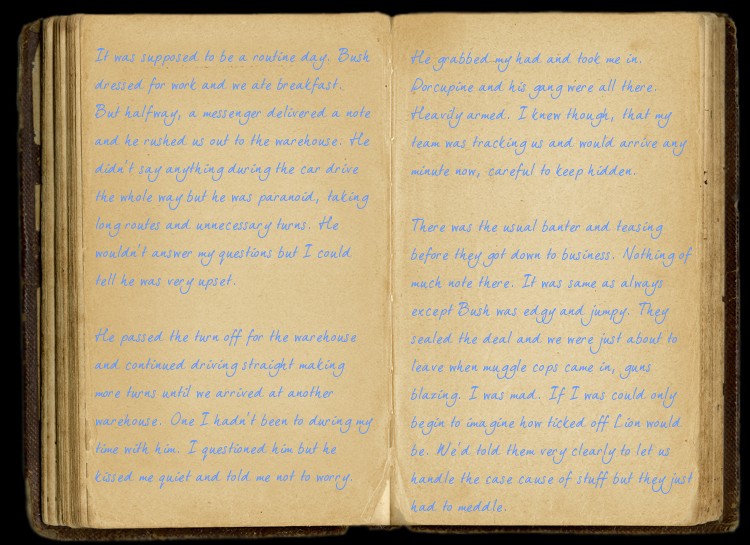 It was supposed to be a routine day. Bush
dressed for work and we ate breakfast.
But halfway, a messenger delivered a note
and he rushed us out to the warehouse. He
didn't say anything during the car drive
the whole way but he was paranoid, taking
long routes and unnecessary turns. He
wouldn't answer my questions but I could
tell he was very upset.
He passed the turn off for the warehouse
and continued driving straight making
more turns until we arrived at another
warehouse. One I hadn't been to during my
time with him. I questioned him but he
kissed me quiet and told me not to worry.
He grabbed my had and took me in.
Porcupine and his gang were all there.
Heavily armed. I knew though, that my
team was tracking us and would arrive any
minute now, careful to keep hidden.
There was the usual banter and teasing
before they got down to business. Nothing of
much note there. It was same as always
except Bush was edgy and jumpy. They
sealed the deal and we were just about to
leave when muggle cops came in, guns
blazing. I was mad. If I was could only
begin to imagine how ticked off Lion would
be. We'd told them very clearly to let us
handle the case cause of stuff but they just
had to meddle.